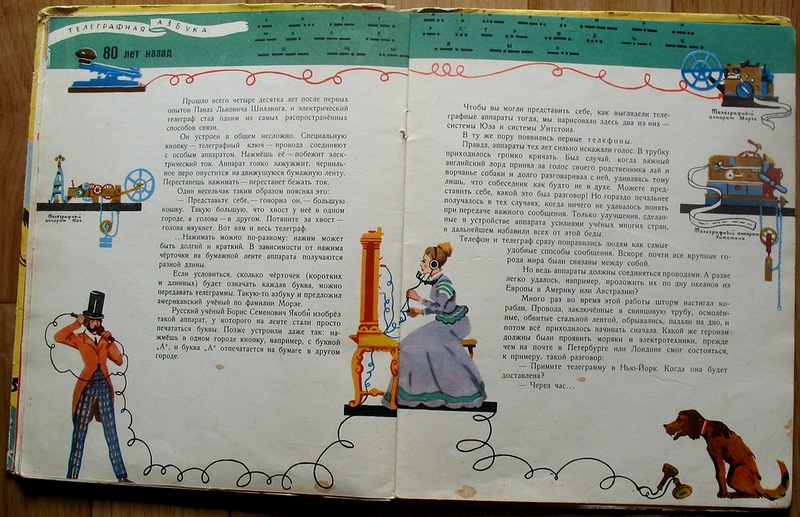 ТЕЛЕГРАФНАЯ АЗБУКА
80 лет назад
Прошло всего четыре десятка лет после первых
опытов Павла Львовича Шиллинга, и электрический
телеграф стал одним из самых распространённых
способов связи.
Он устроен в общем несложно. Специальную
кнопку — телеграфный ключ — провода соединяют
с особым аппаратом. Нажмёшь её — побежит элек-
трический ток. Аппарат тонко зажужжит, черниль-
ное перо опустится на движущуюся бумажную ленту.
Перестанешь нажимать — перестанет бежать ток.
Один весельчак таким образом пояснял это:
— Представьте себе, — говорил он, — большую
кошку. Такую большую, что хвост у неё в одном
городе, а голова — в другом. Потяните за хвост —
голова мяукнет. Вот вам и весь телеграф.
...Нажимать можно по-разному: нажим может
быть долгий и краткий. В зависимости от нажима
чёрточки на бумажной ленте аппарата получаются
разной длины.
Если условиться, сколько чёрточек (коротких
и длинных) будет означать каждая буква, можно
передавать телеграммы. Такую-то азбуку и предложил
американский учёный по фамилии Морзе.
Русский учёный Борис Семенович Якоби изобрёл
такой аппарат, у которого на ленте стали просто
печататься буквы. Позже устроили даже так: на-
жмёшь в одном городе кнопку, например, с буквой
„А“, и буква „А“ отпечатается на бумаге в другом
городе.
Телеграфный
аппарат Юза
Чтобы вы могли представить себе, как выглядели теле-
графные аппараты тогда, мы нарисовали здесь два из них —
системы Юза и системы Уитстона.
В ту же пору появились первые телефоны.
Правда, аппараты тех лет сильно искажали голос. В трубку
приходилось громко кричать. Был случай, когда важный
английский лорд принял за голос своего родственника лай и
ворчание собаки и долго разговаривал с ней, удивляясь тому
лишь, что собеседник как будто не в духе. Можете пред-
ставить себе, какой это был разговор! Но гораздо печальнее
получалось в тех случаях, когда ничего не удавалось понять
при передаче важного сообщения. Только улучшения, сделан-
ные в устройстве аппарата усилиями учёных многих стран,
в дальнейшем избавили всех от этой беды.
Телефон и телеграф сразу понравились людям как самые
удобные способы сообщения. Вскоре почти все крупные го-
рода мира были связаны между собой.
Но ведь аппараты должны соединяться проводами. А разве
легко удалось, например, проложить их по дну океанов из
Европы в Америку или Австралию?
Много раз во время этой работы шторм настигал ко-
рабли. Провода, заключённые в свинцовую трубу, осмолён-
ные, обвитые стальной лентой, обрывались, падали на дно, и
потом всё приходилось начинать сначала. Какой же героями
должны были проявить моряки и электротехники, прежде
чем на почте в Петербурге или Лондоне смог состояться,
к примеру, такой разговор:
— Примите телеграмму в Нью-Йорк. Когда она будет
доставлена?
— Через час...
Телеграфный
аппарат Морзе
Телеграфный аппарат
Уитстона